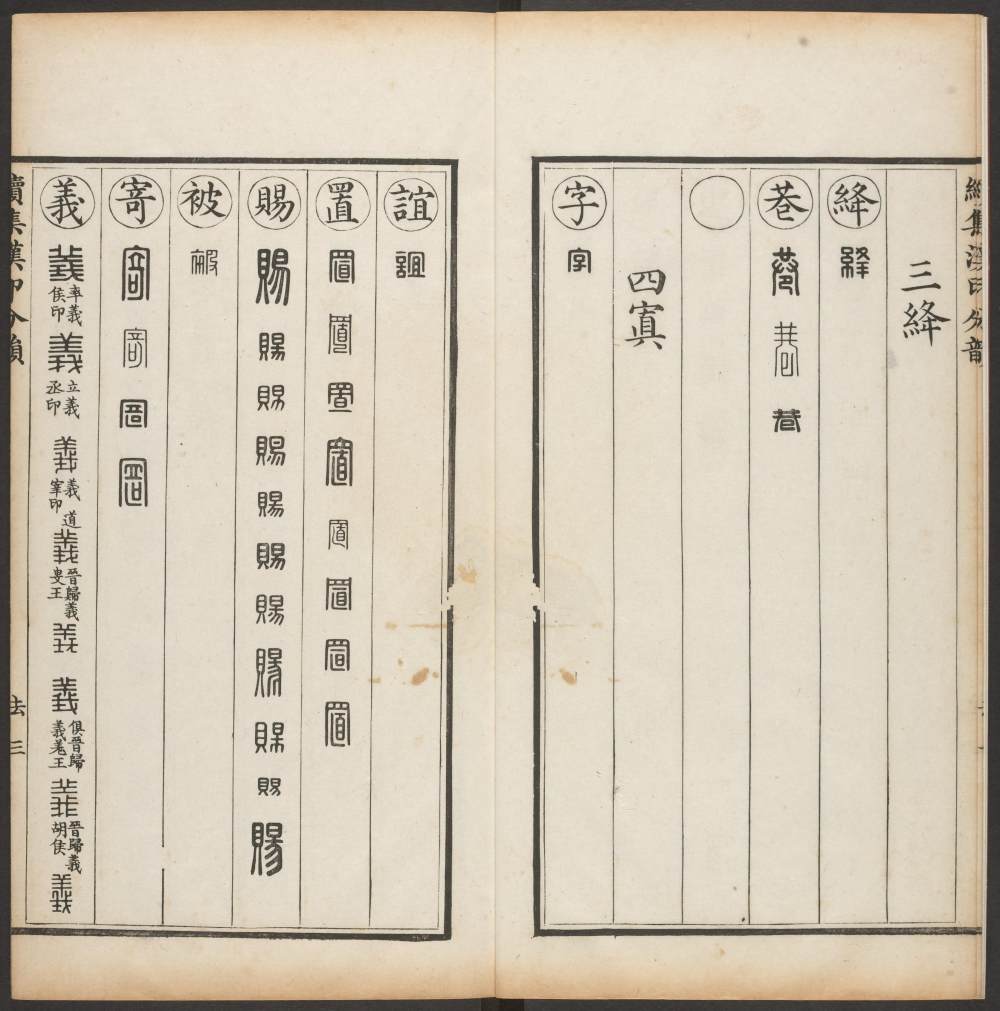 續集漢印分韻
三絳
絳 絳
巷 巷 巷 巷
四寘
字 字
誼 誼
置 置 置 置 置 置 置 置 置
賜 賜 賜 賜 賜 賜 賜 賜 賜 賜 賜 賜
被 被
寄 寄 寄 寄 寄
義 義 率義侯印 義 立義丞印 義 義道宰印 義 晉歸義叟王 義 義 俱晉歸義羌王 義 晉歸義胡侯 義
續集漢印分韻 去 三